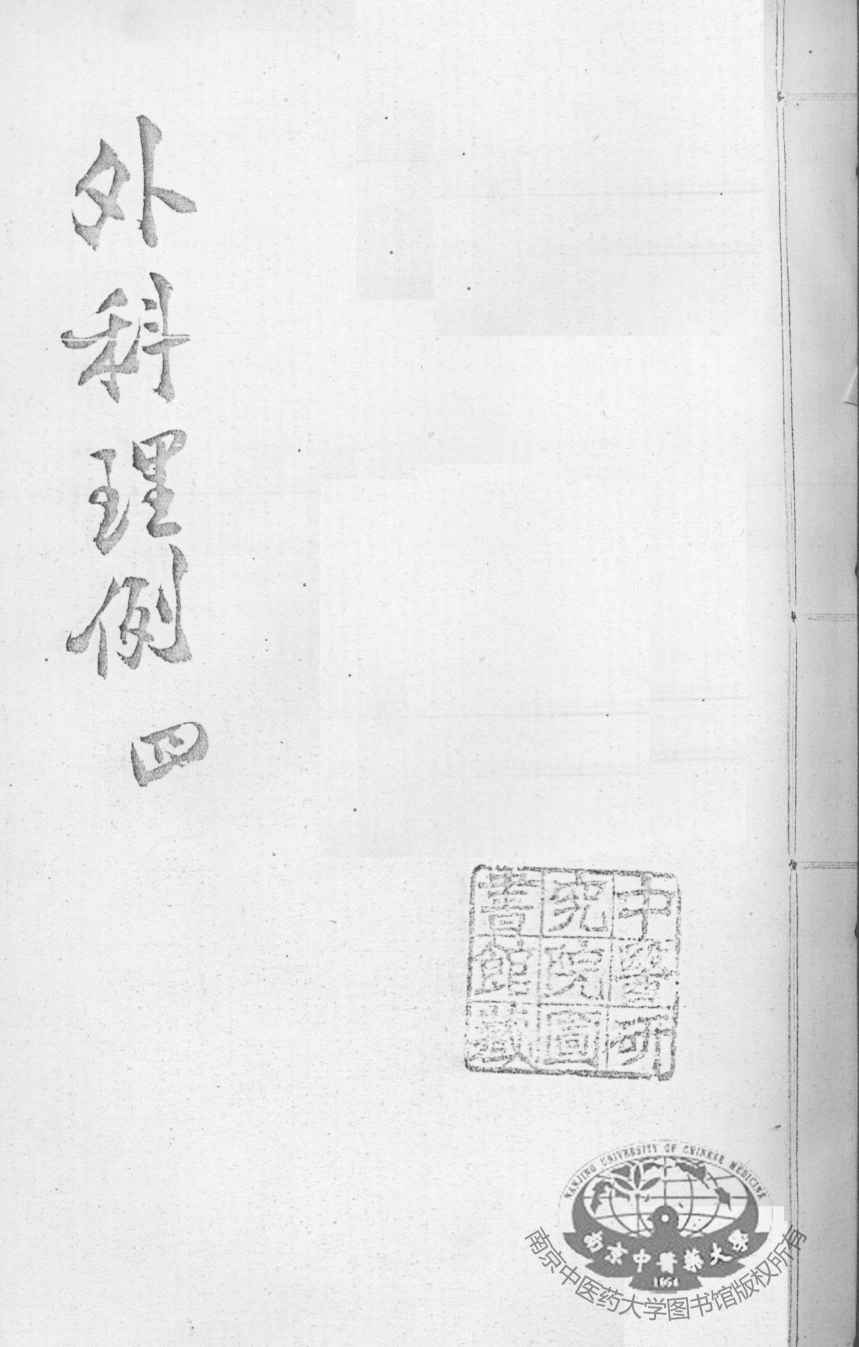 外科理例 四
中醫研
究院圖
書館藏
NANJING UNIVERSITY OF CHINESE MEDICINE
南京中醫藥大學
1954
南京中医药大学图书馆版权所有